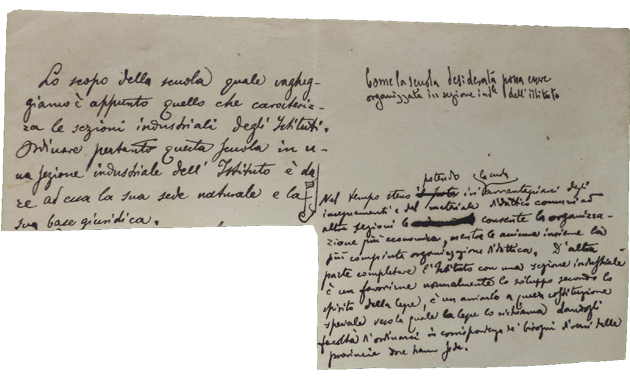 Lo scopo della scuola quale vagheg-
giamo è appunto quello che caratteriz-
za le sezioni industriali degli Istituti.
Ordinare pertanto questa scuola in u-
na sezione industriale dell'Istituto è da-
re ad essa la sua sede naturale e la
sua base giuridica.
Come la scuola desiderata possa essere
organizzata in sezione ind.le dell'istituto
potendo la scuola
Nel tempo stesso in avvantaggiarsi degli
insegnamenti e del materiale didattico comuni ad
altre sezioni le consente la organizza-
zione più economica, mentre le anima insieme la
più compiuta organizzazione didattica. D'altra
parte completare l'Istituto con una sezione industriale
è un favorirne normalmente lo sviluppo secondo lo
spirito della legge, è un avviarlo a quella costituzione
speciale verso la quale la legge lo richiama dandogli
facoltà d'ordinarsi in corrispondenza de' bisogni diversi delle
provincie dove hanno sede.